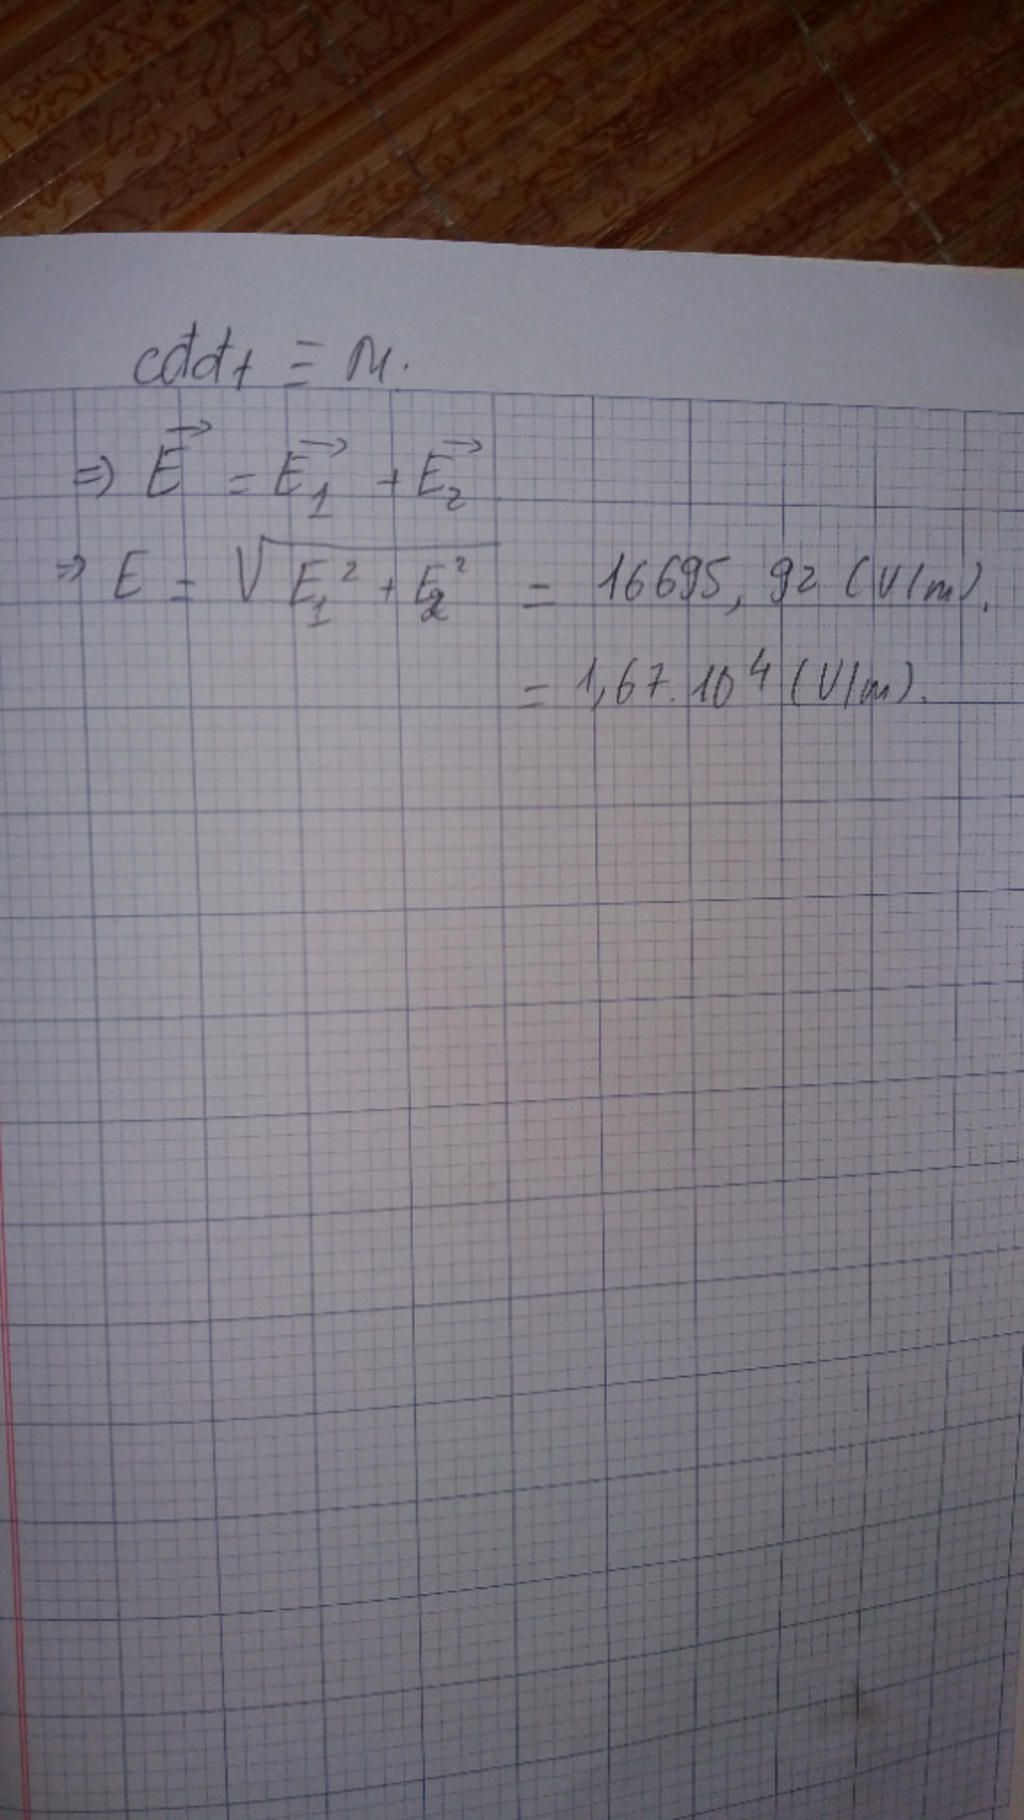 cđđt ≡ M.
⇒ E⃗ = E₁⃗ + E₂⃗
⇒ E = √(E₁² + E₂²) = 16695,92 (V/m).
= 1,67.10⁴ (V/m).